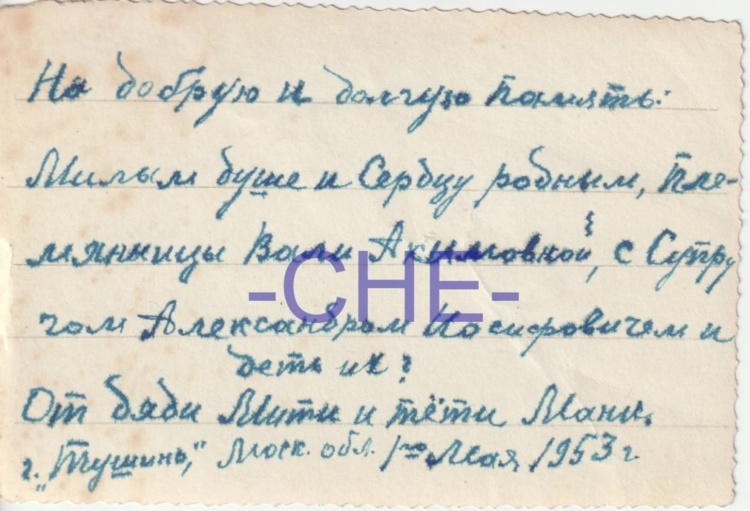 На добрую и долгую память:
Милым душе и Сердцу родным, Пле-
мянницы Вали Акимовной, с Супру
гом Александром Иосифовичем и
деть их?
От дяди Мити и тёти Мани.
г. "Тушино," Моск. обл. 1го Мая 1953 г.
-CHE-